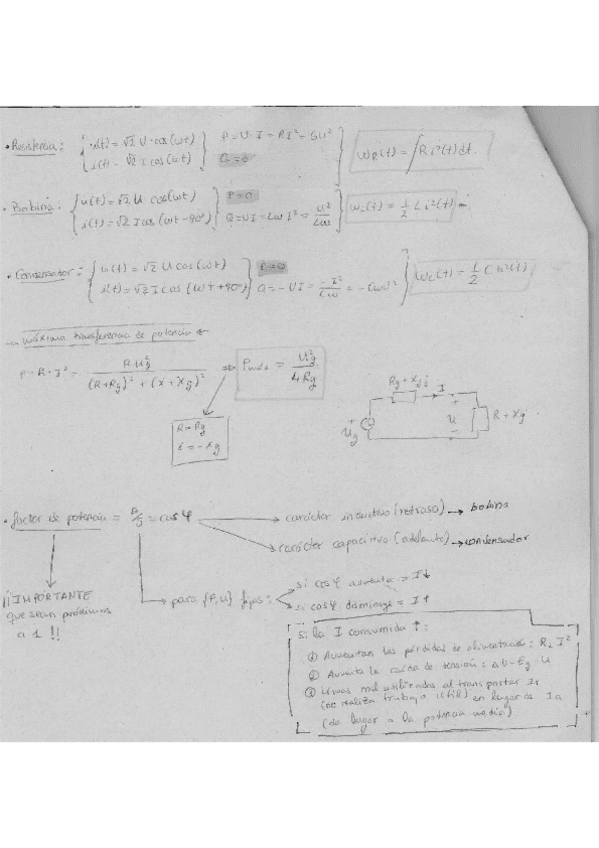 • Resistencia: { u(t) = √2 U · cos(ωt) } P = U · I = R I² = G U² } W_R(t) = ∫ R i²(t) dt.
i(t) = √2 I cos(ωt) Q = 0
• Bobina: { u(t) = √2 U cos(ωt) } P = 0 } W_L(t) = 1/2 L i²(t)
i(t) = √2 I cos(ωt − 90°) Q = UI = Lω I² = U²/Lω
• Condensador: { u(t) = √2 U cos(ωt) } P = 0 } W_C(t) = 1/2 C u²(t)
i(t) = √2 I cos(ωt + 90°) Q = − UI = − I²/Cω = − CωU²
máxima transferencia de potencia
P = R · I² = R U²g / (R + Rg)² + (X + Xg)² ⇒ Pmáx = U²g / 4Rg
R = Rg
X = −Xg
Rg + Xg j I
+ Ug + U − R + Xj
• factor de potencia = P/S = cos φ
carácter inductivo (retraso) → bobina
carácter capacitivo (adelanto) → condensador
¡¡IMPORTANTE
que sean próximos
a 1 !!
para {P,U} fijos:
si cos φ aumenta = I↓
si cos φ disminuye = I↑
si la I consumida ↑:
① Aumentan las pérdidas de alimentación: R_L I²
② Aumenta la caída de tensión: ΔU = Eg − U
③ Líneas mal utilizadas al transportar Ir
(no realiza trabajo útil) en lugar de Ia
(da lugar a la potencia media)